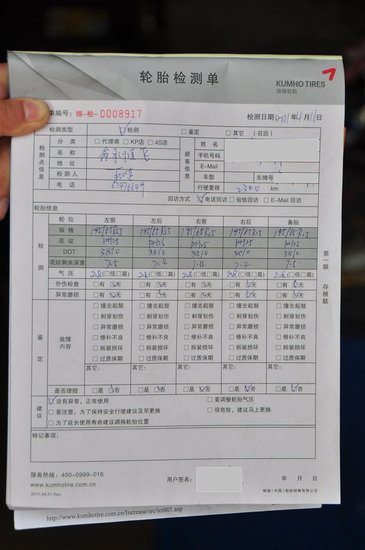 轮胎检测单
KUMHO TIRES
锦湖轮胎
单编号: 锦-检-0008917
检测日期
年 月 日
检测类型 ☑检测 □鉴定 □其它 (召回)
检测点信息
分类 □代理商 □KP店 □4S店
名称
地址
检测人
电话
顾客信息
姓名
手机号码
E-Mail
车型 车牌号
行驶里程 km
回访方式 ☑电话回访 □短信回访 □E-Mail
轮胎信息
轮位 左前 左后 右前 右后 备胎
检测
规格 195/65R15 195/65R15 195/65R15 195/65R15 195/65R15
花纹
DOT
花纹剩余深度 7.5 7.4 7.4 7.4 7.5
气压 2.8(□低□高) 2.8(□低□高) 2.8(□低□高) 2.8(□低□高) 2.8(□低□高)
外伤检查 □有 ☑无 □有 ☑无 □有 ☑无 □有 ☑无 □有 ☑无
异常磨损 □有 ☑无 □有 ☑无 □有 ☑无 □有 ☑无 □有 ☑无
鉴定
故障内容
□撞击起鼓 □撞击起鼓 □撞击起鼓 □撞击起鼓 □撞击起鼓
□刺穿划伤 □刺穿划伤 □刺穿划伤 □刺穿划伤 □刺穿划伤
□异常磨损 □异常磨损 □异常磨损 □异常磨损 □异常磨损
□修补不良 □修补不良 □修补不良 □修补不良 □修补不良
□拆装损坏 □拆装损坏 □拆装损坏 □拆装损坏 □拆装损坏
□过质保期 □过质保期 □过质保期 □过质保期 □过质保期
其它: 其它: 其它: 其它: 其它:
是否理赔 □是 ☑否 □是 ☑否 □是 ☑否 □是 ☑否 □是 ☑否
建议
☑没有异常, 正常使用 □要调整轮胎气压
□要注意, 为了保持安全行驶建议及早更换 □很危险, 建议马上更换
□为了延长使用寿命建议调换轮胎位置
特记事项:
第一联 存根联
服务热线: 400-0999-016
www.kumhotire.com.cn
用户签名: 年 月 日
2011.04.01 Rev.
http://www.kumhotire.com.cn/Increase/srv/icr001.asp